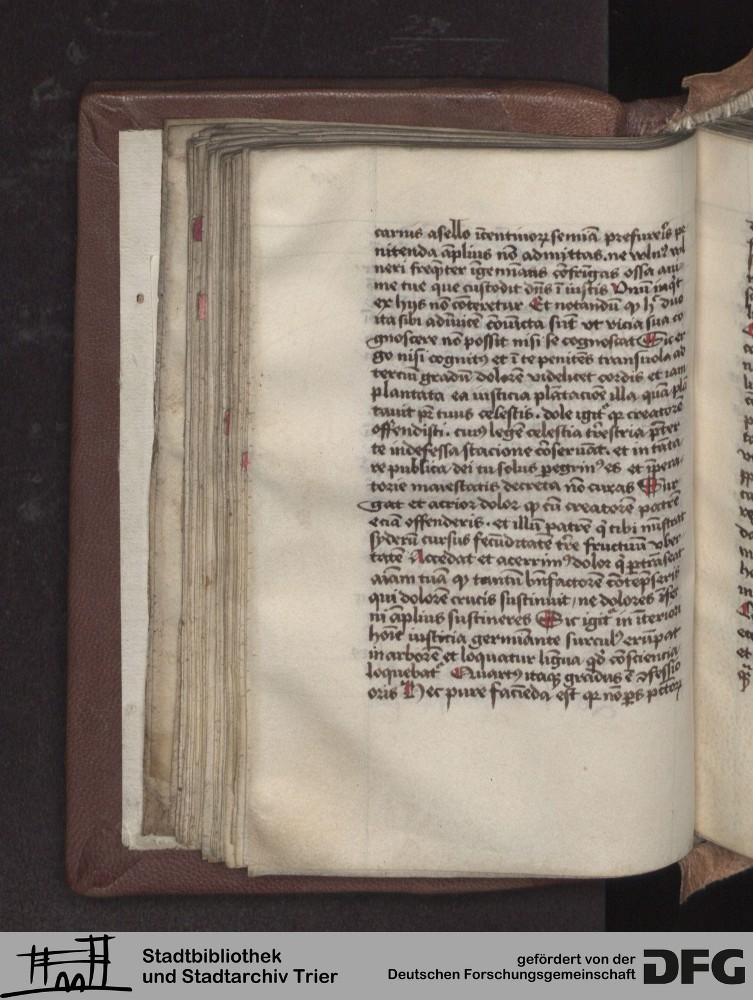 carnis asello ītentivorꝝ semīa prefureīs pe
nitenda āplius nō admittas. ne
neri freqn̄ter īgemīans cōfrīgas ossa aī
me tue que custodit dn̄s ī iustis Vnū inq̄t
ex hijs nō cōteretur Et notandū qͥ duo
ita sibi adīuicē cōiūcta sūt vt vicia sua co
gnoscere nō possit nisi se cognoscat Sic er
go nisi cognitꝰ et ī te penitēs transuola ad
terciū gradū dolorē videlicet cordis et iam
plantata ea iusticia plātacōe illa quā plā
tauit pr̄ tuus celestis. dole igitͬ qꝛ creatorē
offendisti. cuiꝰ legē celestia tr̄restria
te indefessa stacione cōseruāt. et in tāta
re publica dei tu solus pegrinꝰ es et īpera
torie maiestatis decreta nō curas Vr
gat et acrior dolor qͥ cū creatorē patrē
eciā offenderis. et illū patrē qͥ tibi mīstrat
syderū cursus fecūditatē tr̄e fructuū vber
tatē Accedat et acerrimꝰ dolor qͥ ptrāseat
aīam tuā qͥ tantū bn̄factorē cōtēpseris
qui dolorē crucis sustinuit / ne dolores īfer
ni āplius sustineres Sic igitͬ in īteriori
hoīe iusticia germīante surculꝰ erūpat
in arborē et loquatur līgua qd̄ cōsciencia
loquebatͬ Quartꝰ itaqꝫ gradus ē ꝯfessio
oris Hec pure faciēda est qꝛ nō ps pctōꝝ
Stadtbibliothek
und Stadtarchiv Trier
gefördert von der
Deutschen Forschungsgemeinschaft
DFG